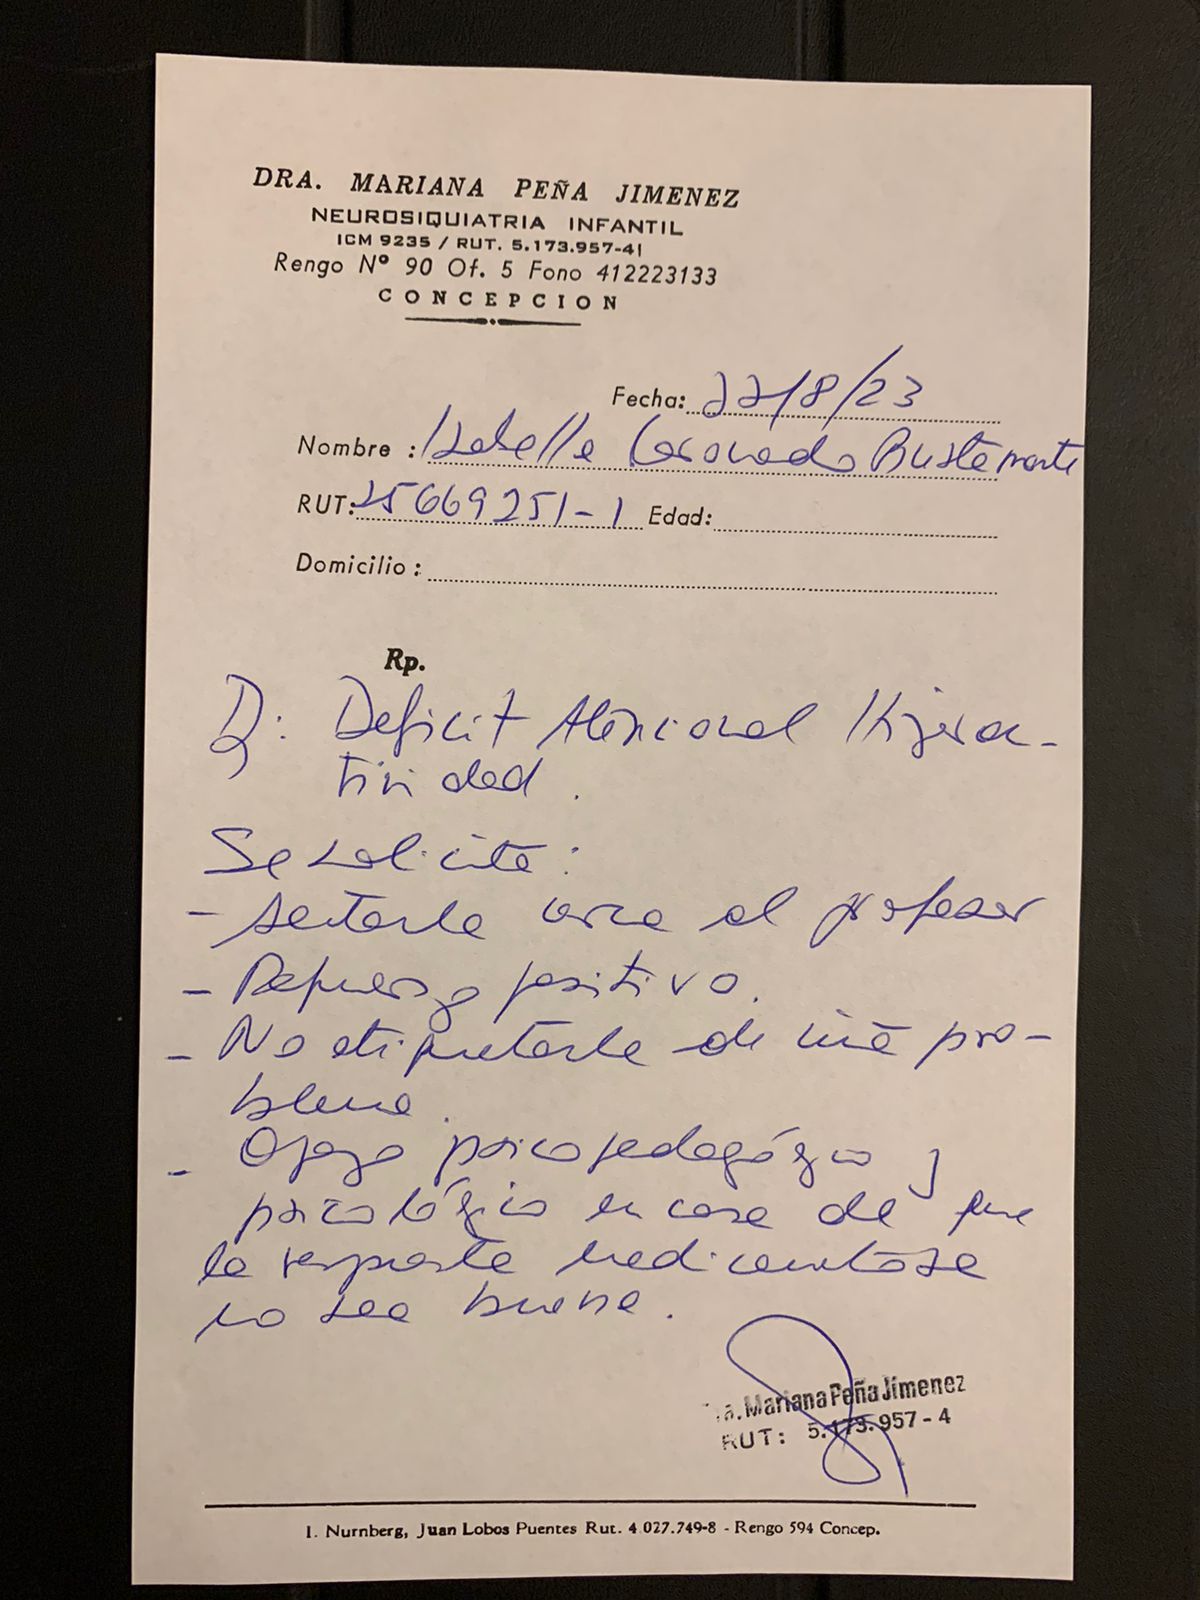 DRA. MARIANA PEÑA JIMENEZ
NEUROSIQUIATRIA INFANTIL
ICM 9235 / RUT. 5.173.957-4
Rengo Nº 90 Of. 5 Fono 412223133
CONCEPCION
Fecha: 22/8/23
Nombre : Isabella Coronado Bustamante
RUT: 25669251-1 Edad:
Domicilio :
Rp.
D: Deficit Atencional Hiperac-
tividad.
Se solicita:
- sentarla cerca del profesor
- Refuerzo positivo.
- No etiquetarla de niña pro-
blema.
- Apoyo psicopedagógico y
psicológico en caso de que
la respuesta medicamentosa
no sea buena.
ra. Mariana Peña Jimenez
RUT: 5.173.957-4
I. Nurnberg, Juan Lobos Puentes Rut. 4.027.749-8 - Rengo 594 Concep.